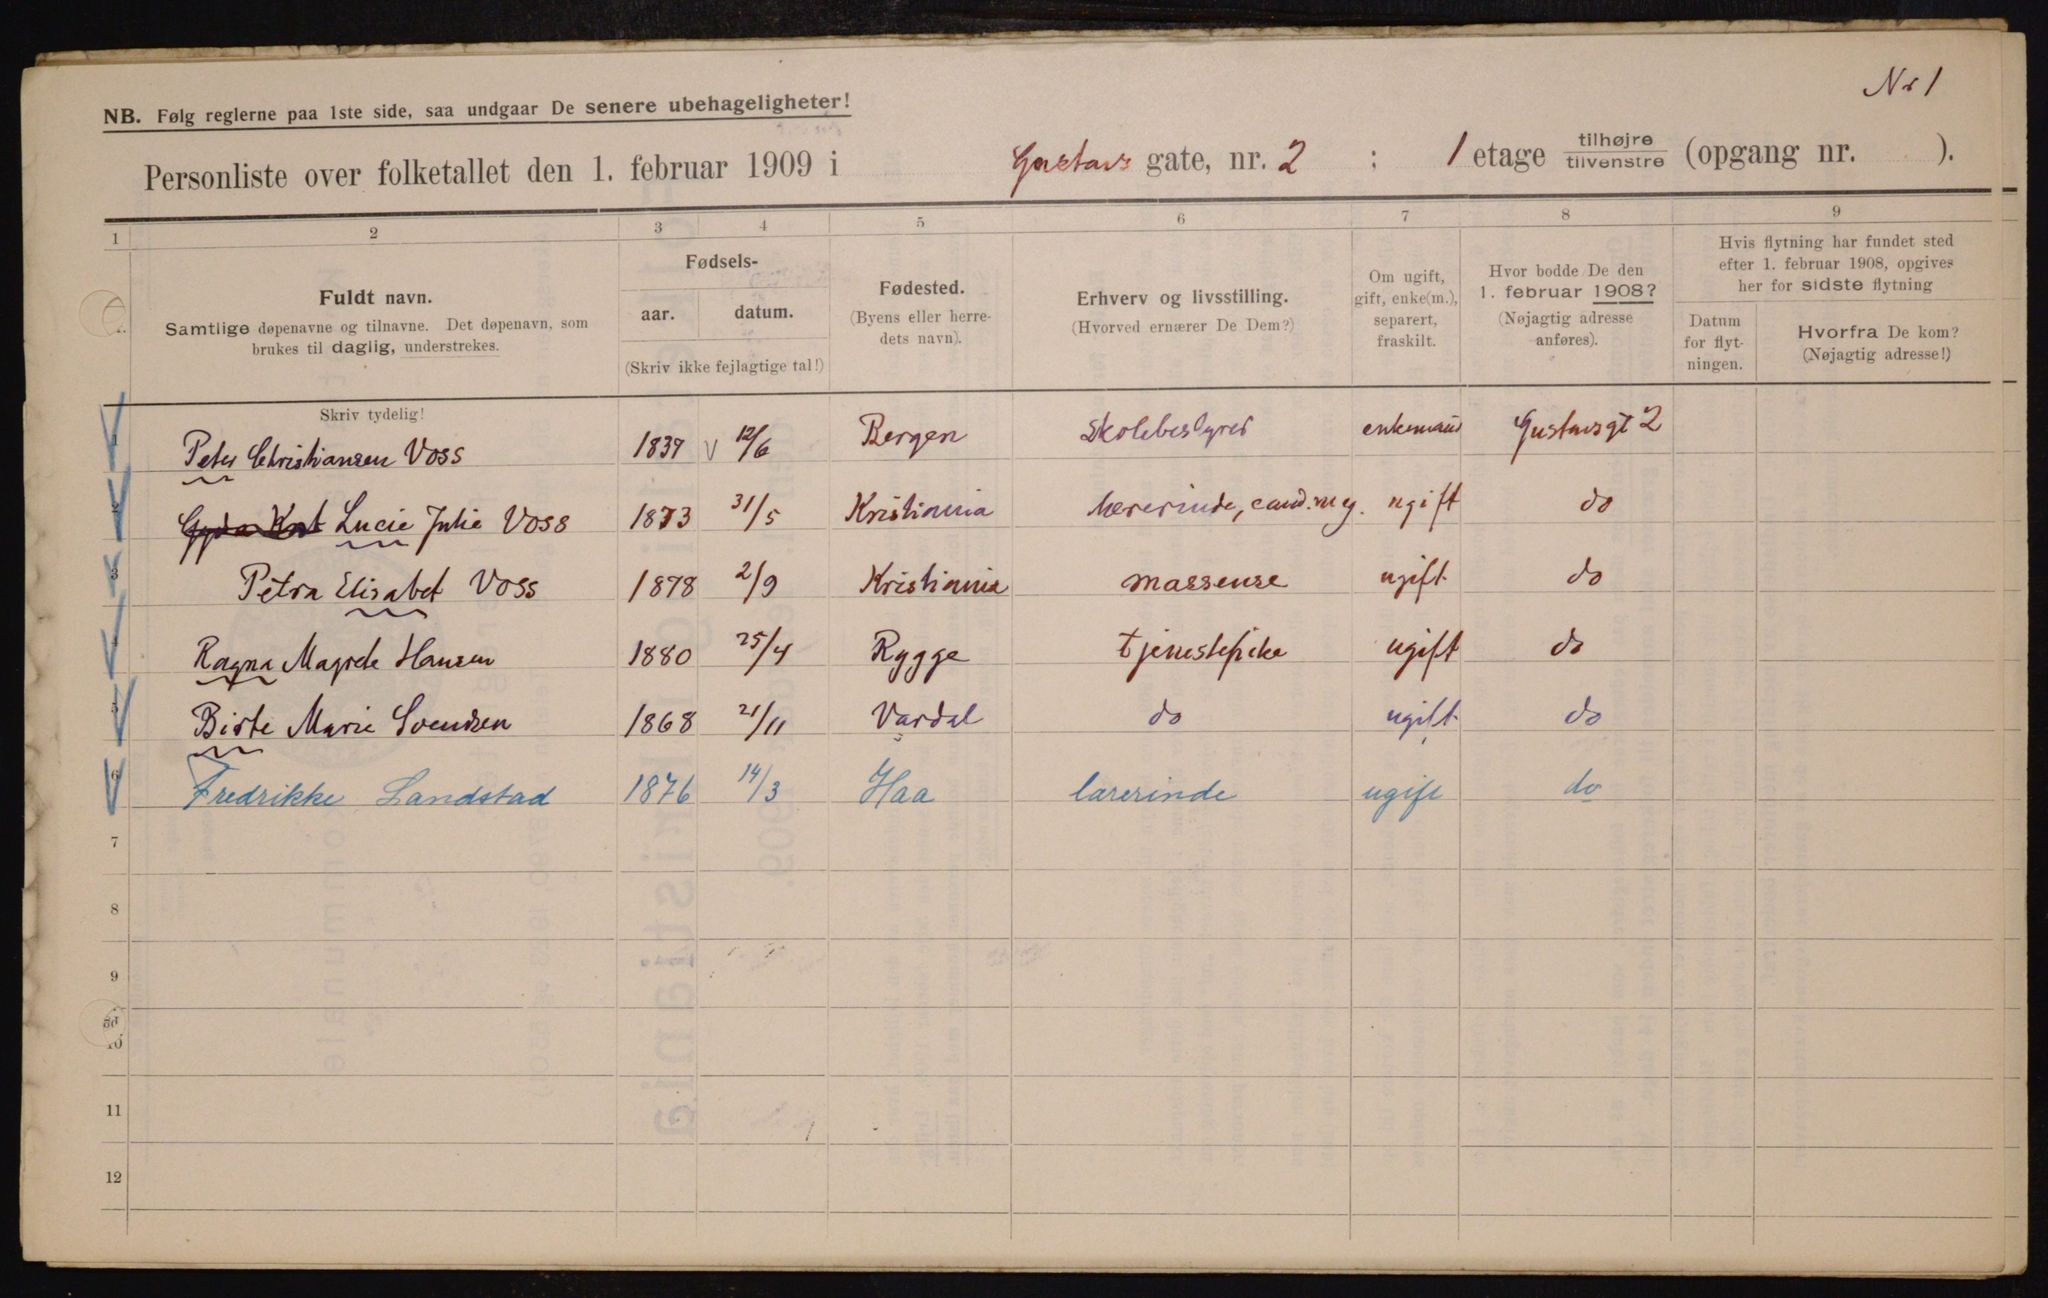 Nr 1
NB. Følg reglerne paa 1ste side, saa undgaar De senere ubehageligheter!
Personliste over folketallet den 1. februar 1909 i Gustavs gate, nr. 2 ; 1 etage tilhøjre tilvenstre (opgang nr. ).
1 2 3 4 5 6 7 8 9
Fuldt navn.
Samtlige døpenavne og tilnavne. Det døpenavn, som
brukes til daglig, understrekes.
Fødsels-
aar. datum.
(Skriv ikke fejlagtige tal!)
Fødested.
(Byens eller herre-
dets navn).
Erhverv og livsstilling.
(Hvorved ernærer De Dem?)
Om ugift,
gift, enke(m.),
separert,
fraskilt.
Hvor bodde De den
1. februar 1908?
(Nøjagtig adresse
anføres).
Hvis flytning har fundet sted
efter 1. februar 1908, opgives
her for sidste flytning
Datum
for flyt-
ningen.
Hvorfra De kom?
(Nøjagtig adresse!)
Skriv tydelig!
1 Peter Christiansen Voss 1837 12/6 Bergen Skolebestyrer enkemand Gustavsgt 2
2 Lucie Julie Voss 1873 31/5 Kristiania Lærerinde, cand. mag. ugift do
3 Petra Elisabet Voss 1878 2/9 Kristiania massøuse ugift do
4 Ragna Magrete Hansen 1880 25/4 Rygge tjenestepike ugift do
5 Birte Marie Svendsen 1868 21/11 Vardal do ugift do
6 Fredrikke Landstad 1876 14/3 Haa lærerinde ugift do
7
8
9
10
11
12